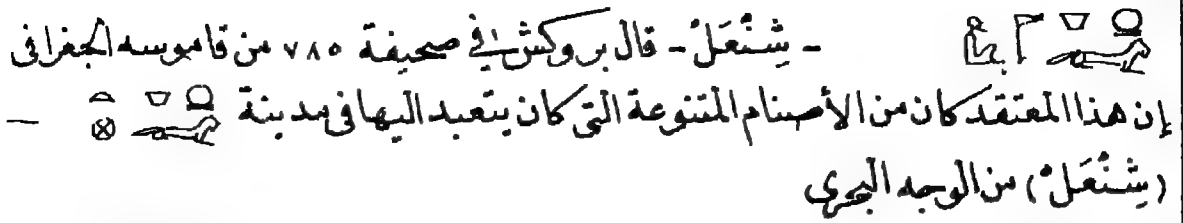 - شِنْعَلْ - قال بروكش في صحيفة ٧٨٥ من قاموسه الجغرافى
إن هذا المعتقد كان من الأصنام المتنوعة التى كان يتعبد اليها فى مدينة —
(شِنْعَلْ) من الوجه البحرى